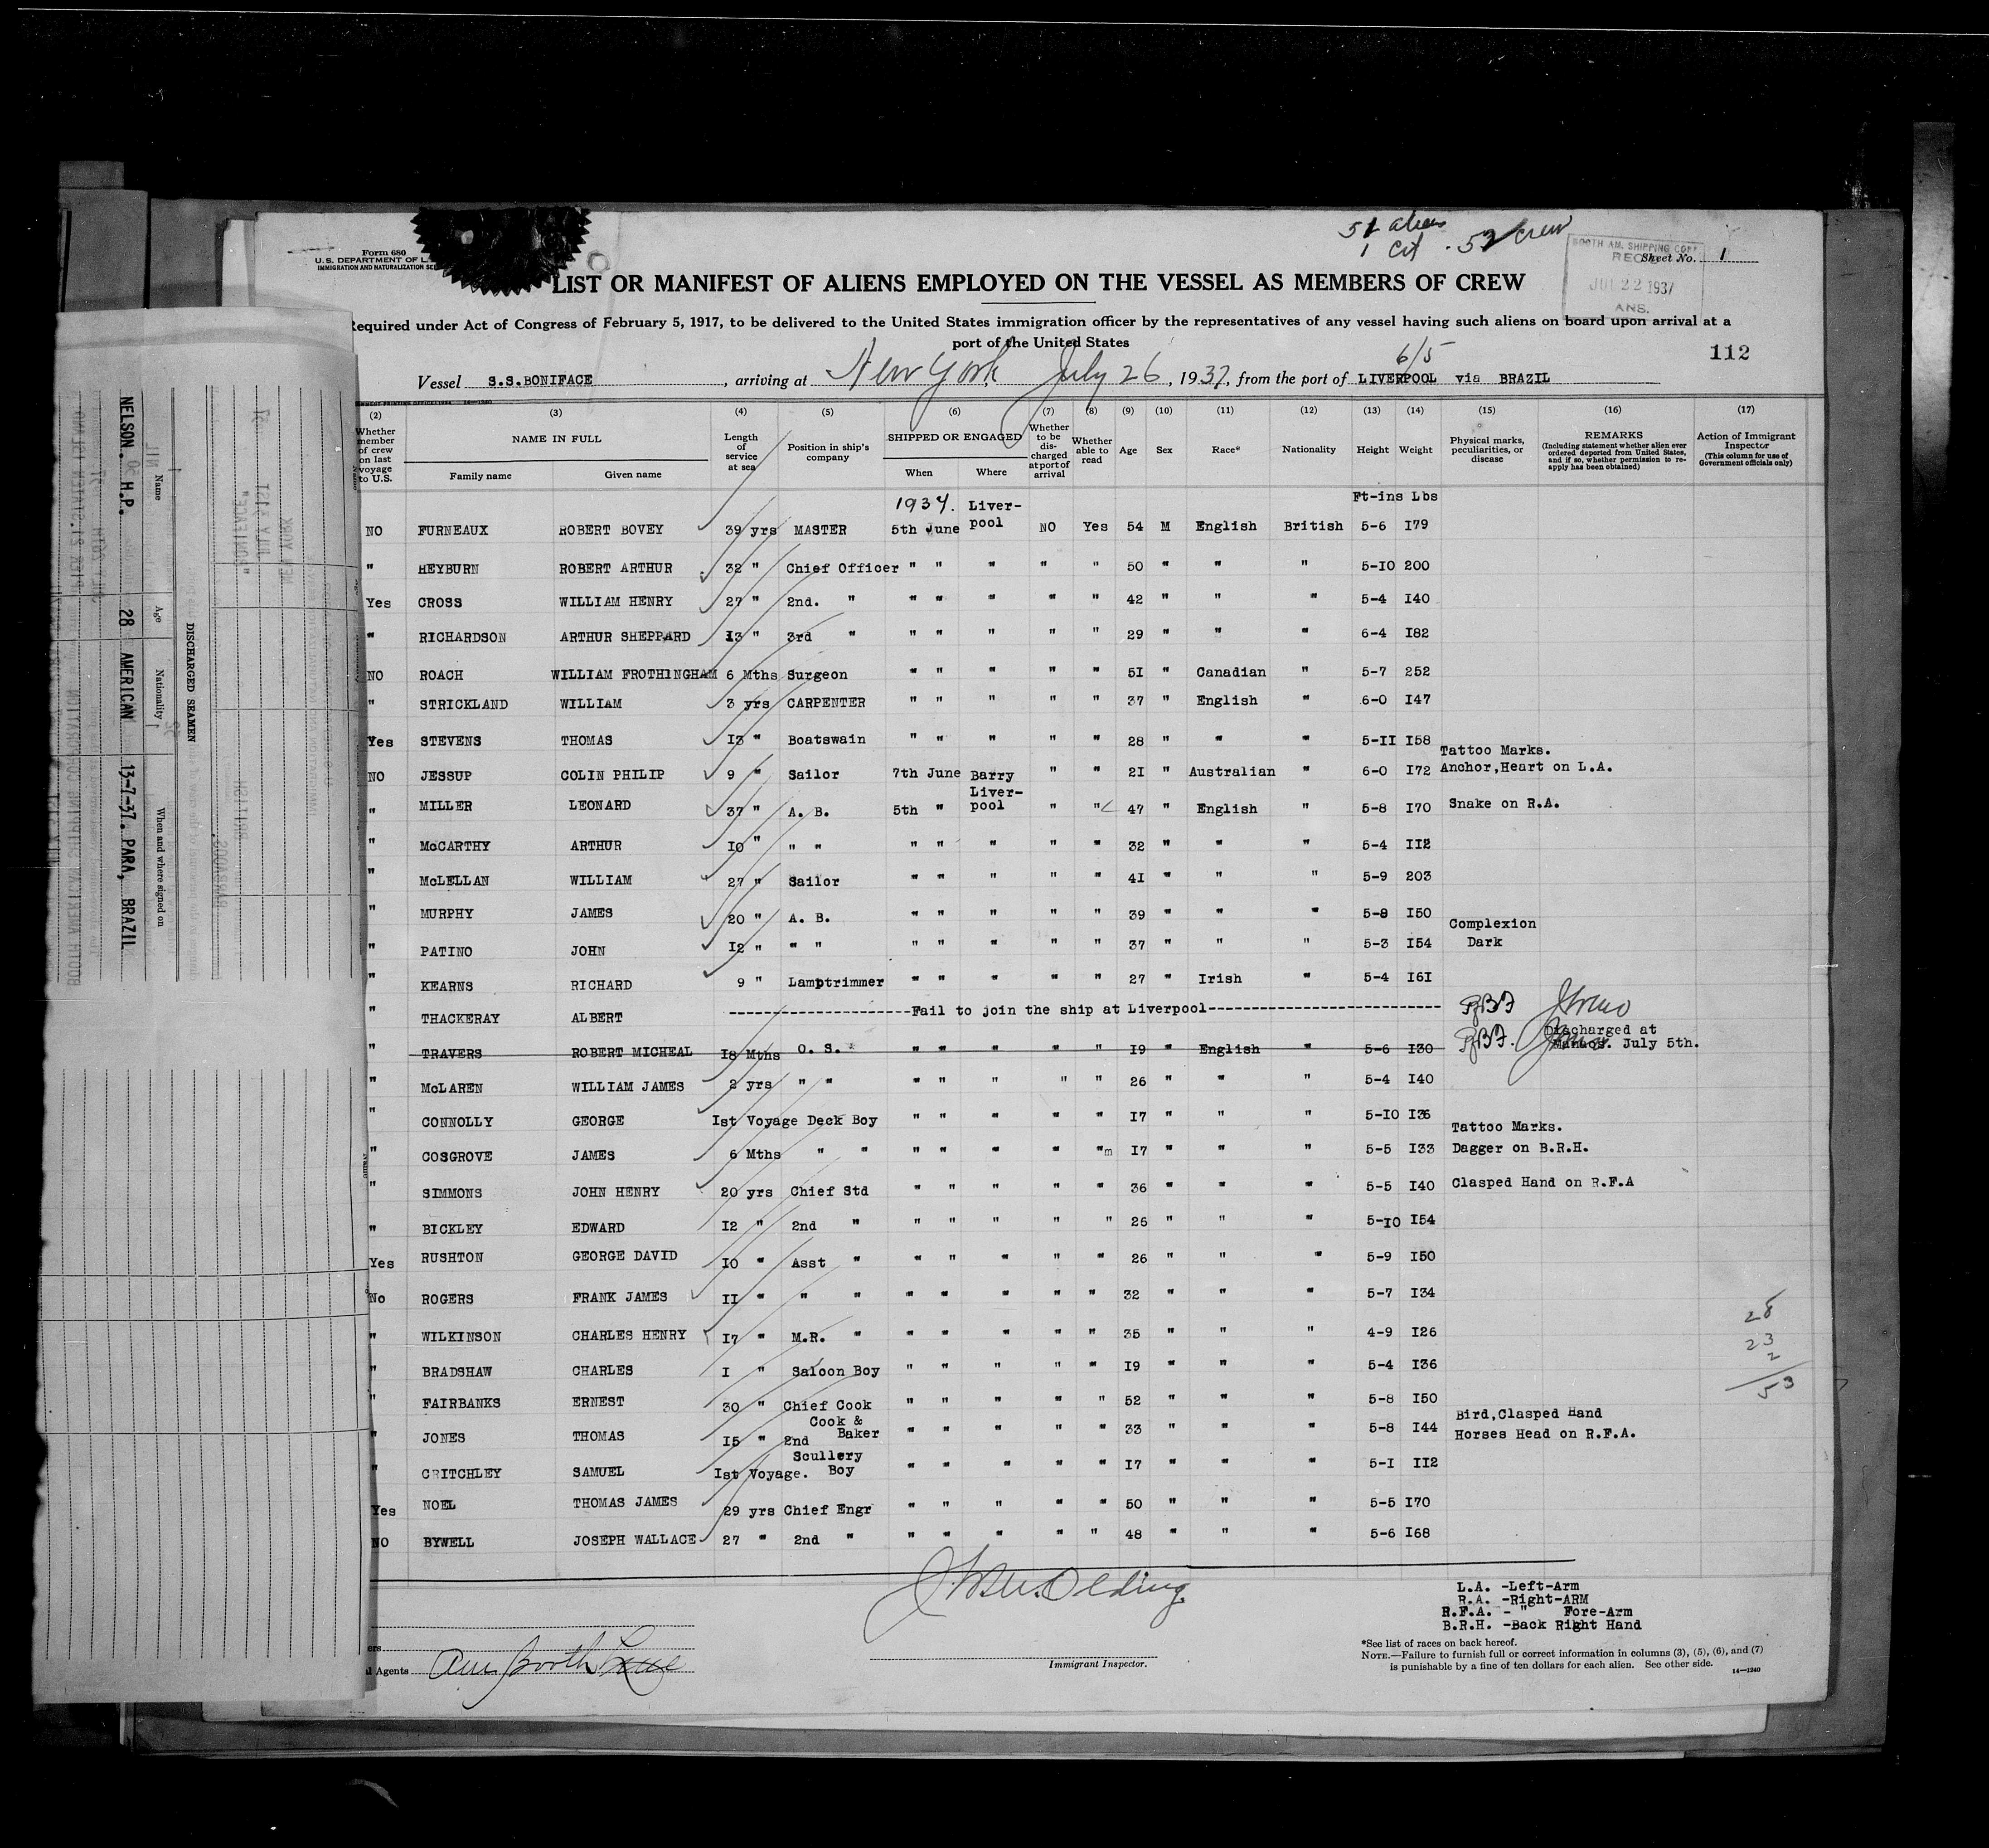 51 aliens
1 Cit - 52 crew
BOOTH AM. SHIPPING CORP.
JUL 22 1937
ANS.
Form 680
U.S. DEPARTMENT OF L
IMMIGRATION AND NATURALIZATION SE
Sheet No. 1
LIST OR MANIFEST OF ALIENS EMPLOYED ON THE VESSEL AS MEMBERS OF CREW
Required under Act of Congress of February 5, 1917, to be delivered to the United States immigration officer by the representatives of any vessel having such aliens on board upon arrival at a
port of the United States
112
6/5
Vessel S.S.BONIFACE , arriving at New York July 26, 1937, from the port of LIVERPOOL via BRAZIL
(2) (3) (4) (5) (6) (7) (8) (9) (10) (11) (12) (13) (14) (15) (16) (17)
Whether member of crew on last voyage to U.S. NAME IN FULL Family name Given name Length of service at sea Position in ship's company SHIPPED OR ENGAGED When Where Whether to be discharged at port of arrival Whether able to read Age Sex Race* Nationality Height Weight Physical marks, peculiarities, or disease REMARKS (Including statement whether alien ever ordered deported from United States, and if so, whether permission to reapply has been obtained) Action of Immigrant Inspector (This column for use of Government officials only)
1937. Liver- Ft-ins Lbs
NO FURNEAUX ROBERT BOVEY 39 yrs MASTER 5th June pool NO Yes 54 M English British 5-6 I79
" HEYBURN ROBERT ARTHUR 32 " Chief Officer " " " " " 50 " " " 5-IO 200
Yes CROSS WILLIAM HENRY 27 " 2nd. " " " " " " 42 " " " 5-4 I40
" RICHARDSON ARTHUR SHEPPARD I3 " 3rd " " " " " " 29 " " " 6-4 I82
NO ROACH WILLIAM FROTHINGHAM 6 Mths Surgeon " " " " " 5I " Canadian " 5-7 252
" STRICKLAND WILLIAM 3 yrs CARPENTER " " " " " 37 " English " 6-0 I47
Yes STEVENS THOMAS I3 " Boatswain " " " " " 28 " " " 5-II I58
Tattoo Marks.
NO JESSUP COLIN PHILIP 9 " Sailor 7th June Barry " " 2I " Australian " 6-0 I72 Anchor,Heart on L.A.
Liver-
" MILLER LEONARD 37 " A. B. 5th " pool " " 47 " English " 5-8 I70 Snake on R.A.
" McCARTHY ARTHUR IO " " " " " " " " 32 " " " 5-4 II2
" McLELLAN WILLIAM 27 " Sailor " " " " " 4I " " " 5-9 203
" MURPHY JAMES 20 " A. B. " " " " " 39 " " " 5-8 I50
Complexion
" PATINO JOHN I2 " " " " " " " " 37 " " " 5-3 I54 Dark
" KEARNS RICHARD 9 " Lamptrimmer " " " " " 27 " Irish " 5-4 I6I
" THACKERAY ALBERT --------------------Fail to join the ship at Liverpool--------------------------
Discharged at
" TRAVERS ROBERT MICHEAL I8 Mths O. S. " " " " " I9 " English " 5-6 I30 Manaos. July 5th.
" McLAREN WILLIAM JAMES 2 yrs " " " " " " " 26 " " " 5-4 I40
" CONNOLLY GEORGE Ist Voyage Deck Boy " " " " " I7 " " " 5-IO I36
Tattoo Marks.
" COSGROVE JAMES 6 Mths " " " " " " "m I7 " " " 5-5 I33 Dagger on B.R.H.
" SIMMONS JOHN HENRY 20 yrs Chief Std " " " " " 36 " " " 5-5 I40 Clasped Hand on R.F.A
" BICKLEY EDWARD I2 " 2nd " " " " " " 26 " " " 5-IO I54
Yes RUSHTON GEORGE DAVID IO " Asst " " " " " " 26 " " " 5-9 I50
No ROGERS FRANK JAMES II " " " " " " " " 32 " " " 5-7 I34
" WILKINSON CHARLES HENRY I7 " M.R. " " " " " " 35 " " " 4-9 I26
" BRADSHAW CHARLES I " Saloon Boy " " " " " I9 " " " 5-4 I36
" FAIRBANKS ERNEST 30 " Chief Cook " " " " " 52 " " " 5-8 I50
Cook & Bird,Clasped Hand
" JONES THOMAS I5 " 2nd Baker " " " " " 33 " " " 5-8 I44 Horses Head on R.F.A.
Scullery
" CRITCHLEY SAMUEL Ist Voyage. Boy " " " " " I7 " " " 5-I II2
Yes NOEL THOMAS JAMES 29 yrs Chief Engr " " " " " 50 " " " 5-5 I70
NO BYWELL JOSEPH WALLACE 27 " 2nd " " " " " " 48 " " " 5-6 I68
28
23
2
53
L.A. -Left-Arm
R.A. -Right-ARM
R.F.A. - " Fore-Arm
B.R.H. -Back Right Hand
*See list of races on back hereof.
NOTE.—Failure to furnish full or correct information in columns (3), (5), (6), and (7)
is punishable by a fine of ten dollars for each alien. See other side.
14—1240
Immigrant Inspector.
ers
l Agents Am Booth Line
DISCHARGED SEAMEN
Name Age Nationality When and where signed on
NELSON. H.P. 28 AMERICAN 13-7-37. PARA, BRAZIL